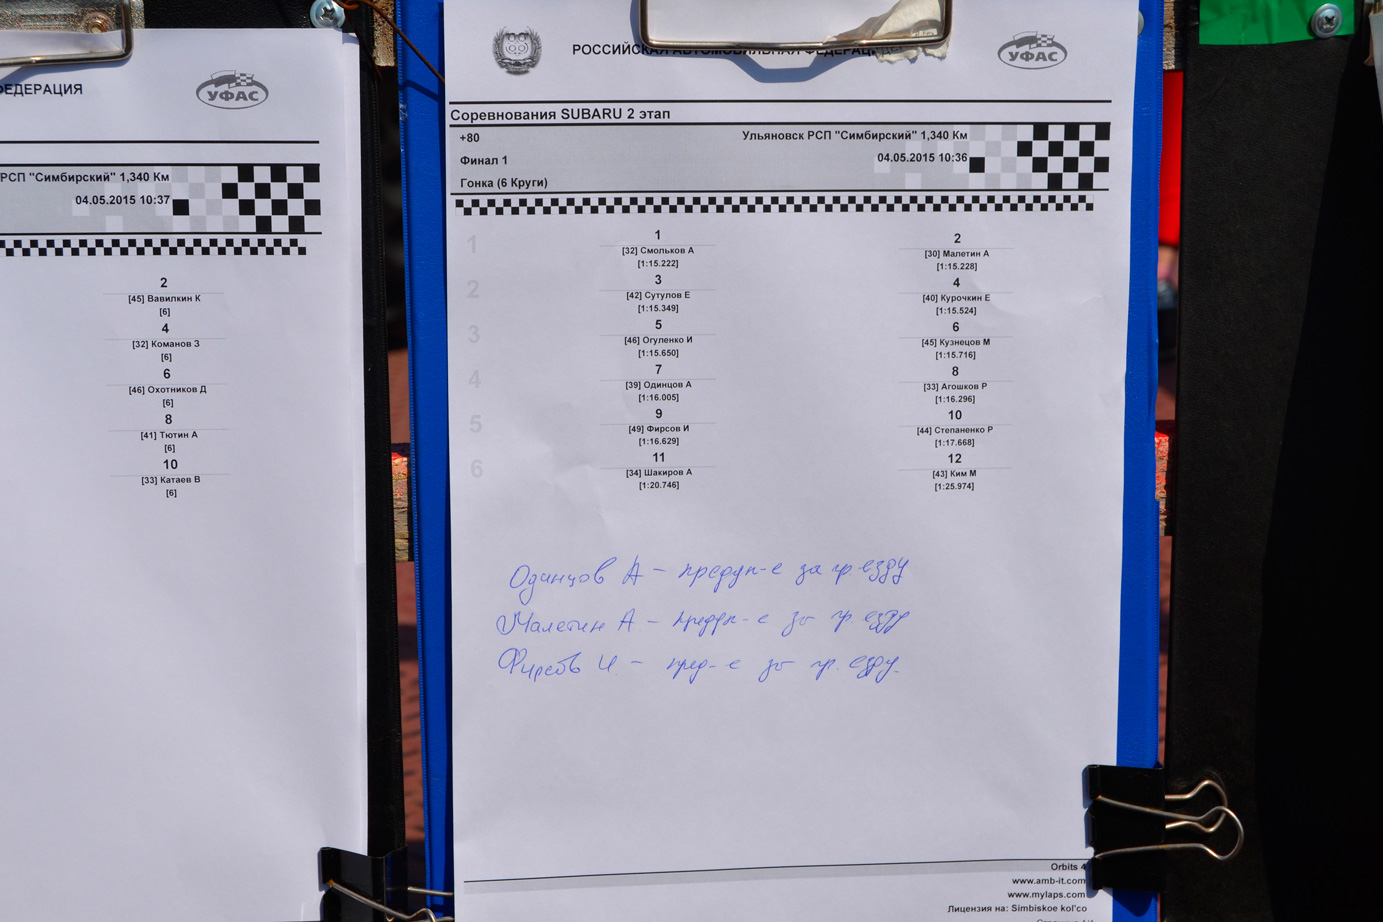 ФЕДЕРАЦИЯ
УФАС
РСП "Симбирский" 1,340 Км
04.05.2015 10:37
2
[45] Вавилкин К
[6]
4
[32] Команов З
[6]
6
[46] Охотников Д
[6]
8
[41] Тютин А
[6]
10
[33] Катаев В
[6]
РОССИЙСКАЯ АВТОМОБИЛЬНАЯ ФЕДЕРАЦИ
УФАС
Соревнования SUBARU 2 этап
+80 Ульяновск РСП "Симбирский" 1,340 Км
Финал 1 04.05.2015 10:36
Гонка (6 Круги)
1 1 2
[32] Смольков А [30] Малетин А
[1:15.222] [1:15.228]
2 3 4
[42] Сутулов Е [40] Курочкин Е
[1:15.349] [1:15.524]
3 5 6
[46] Огуленко И [45] Кузнецов М
[1:15.650] [1:15.716]
4 7 8
[39] Одинцов А [33] Агошков Р
[1:16.005] [1:16.296]
5 9 10
[49] Фирсов И [44] Степаненко Р
[1:16.629] [1:17.668]
6 11 12
[34] Шакиров А [43] Ким М
[1:20.746] [1:25.974]
Одинцов А – предуп-е за гр. езду
Малетин А – предуп-е за гр езду
Фирсов И. – пред-е за гр. езду.
Orbits 4
www.amb-it.com
www.mylaps.com
Лицензия на: Simbiskoe kol'co